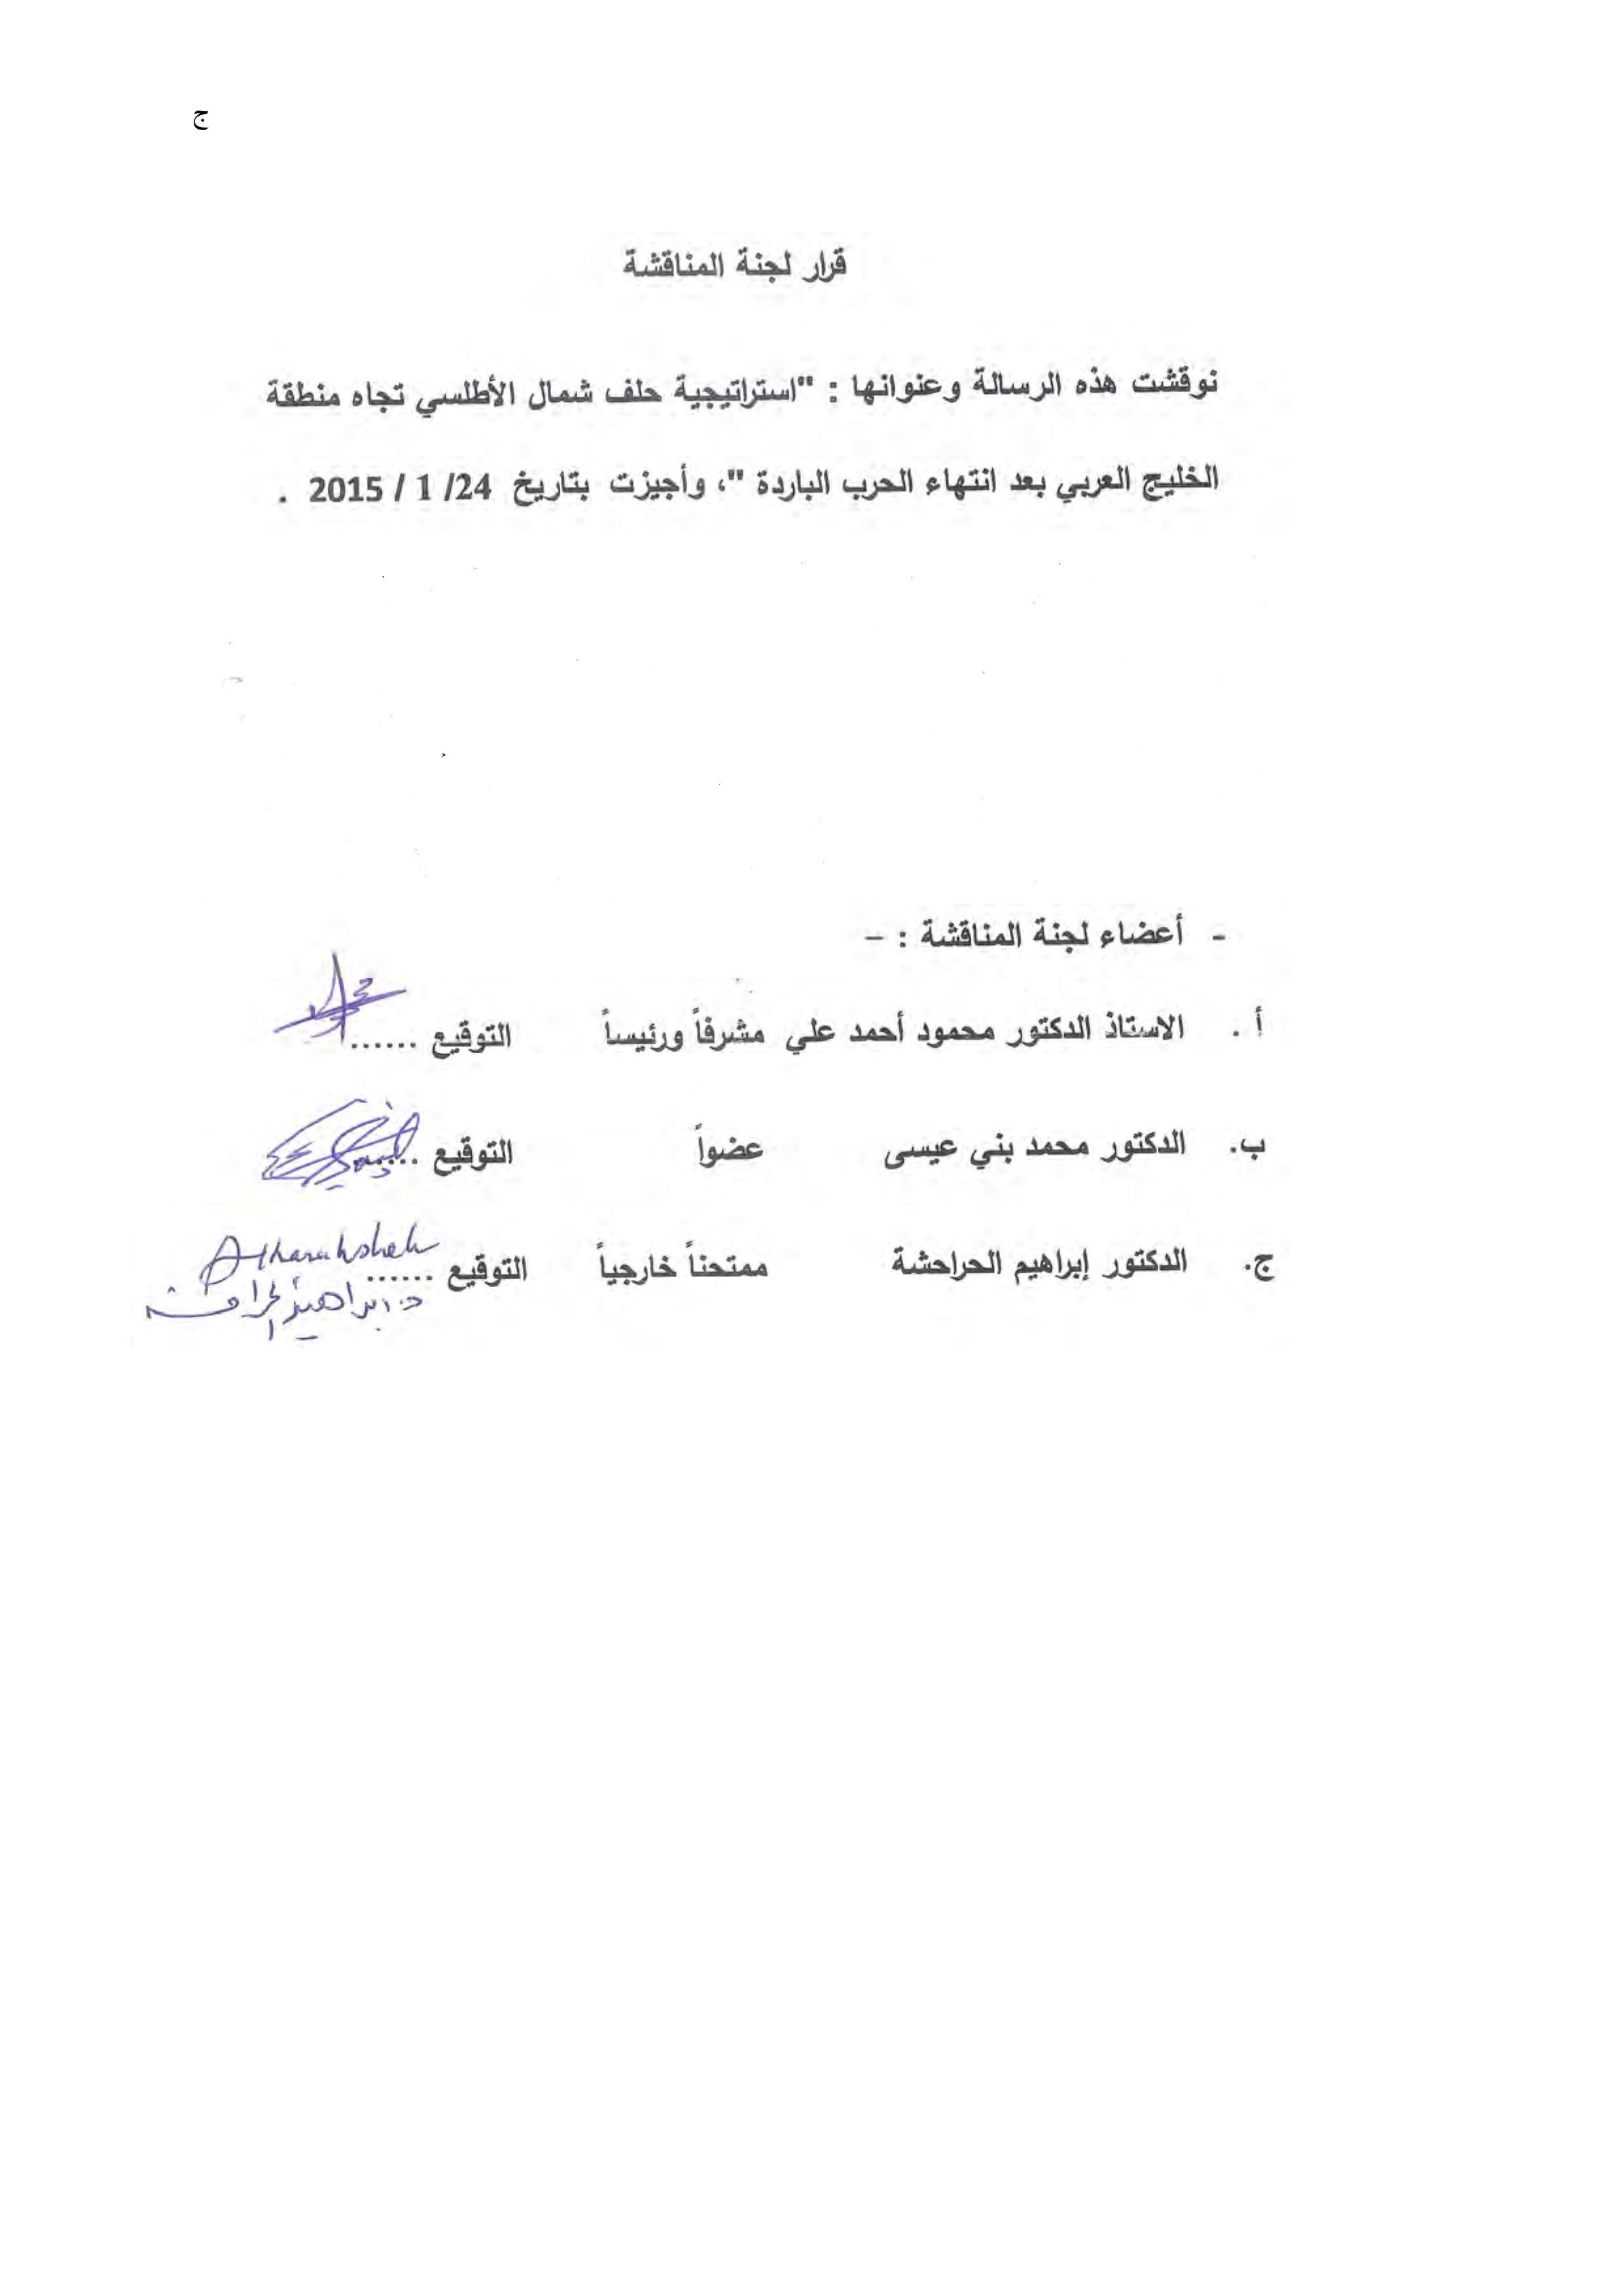 ج
قرار لجنة المناقشة
نوقشت هذه الرسالة وعنوانها : "استراتيجية حلف شمال الأطلسي تجاه منطقة
الخليج العربي بعد انتهاء الحرب الباردة "، وأجيزت بتاريخ 24/ 1 / 2015 .
- أعضاء لجنة المناقشة : –
أ . الاستاذ الدكتور محمود أحمد علي مشرفاً ورئيساً التوقيع ......
ب. الدكتور محمد بني عيسى عضواً التوقيع ......
ج. الدكتور إبراهيم الحراحشة ممتحناً خارجياً التوقيع ......
Alharahsheh
د. ابراهيم الحراحشة